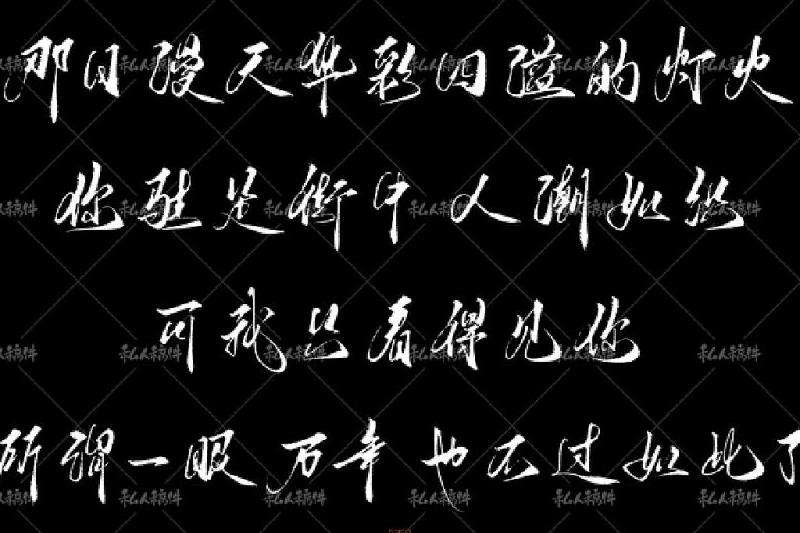 那日漫天华彩四溢的灯火
你驻足街中 人潮如织
可我只看得见你
所谓一眼万年 也不过如此了
私人稿件